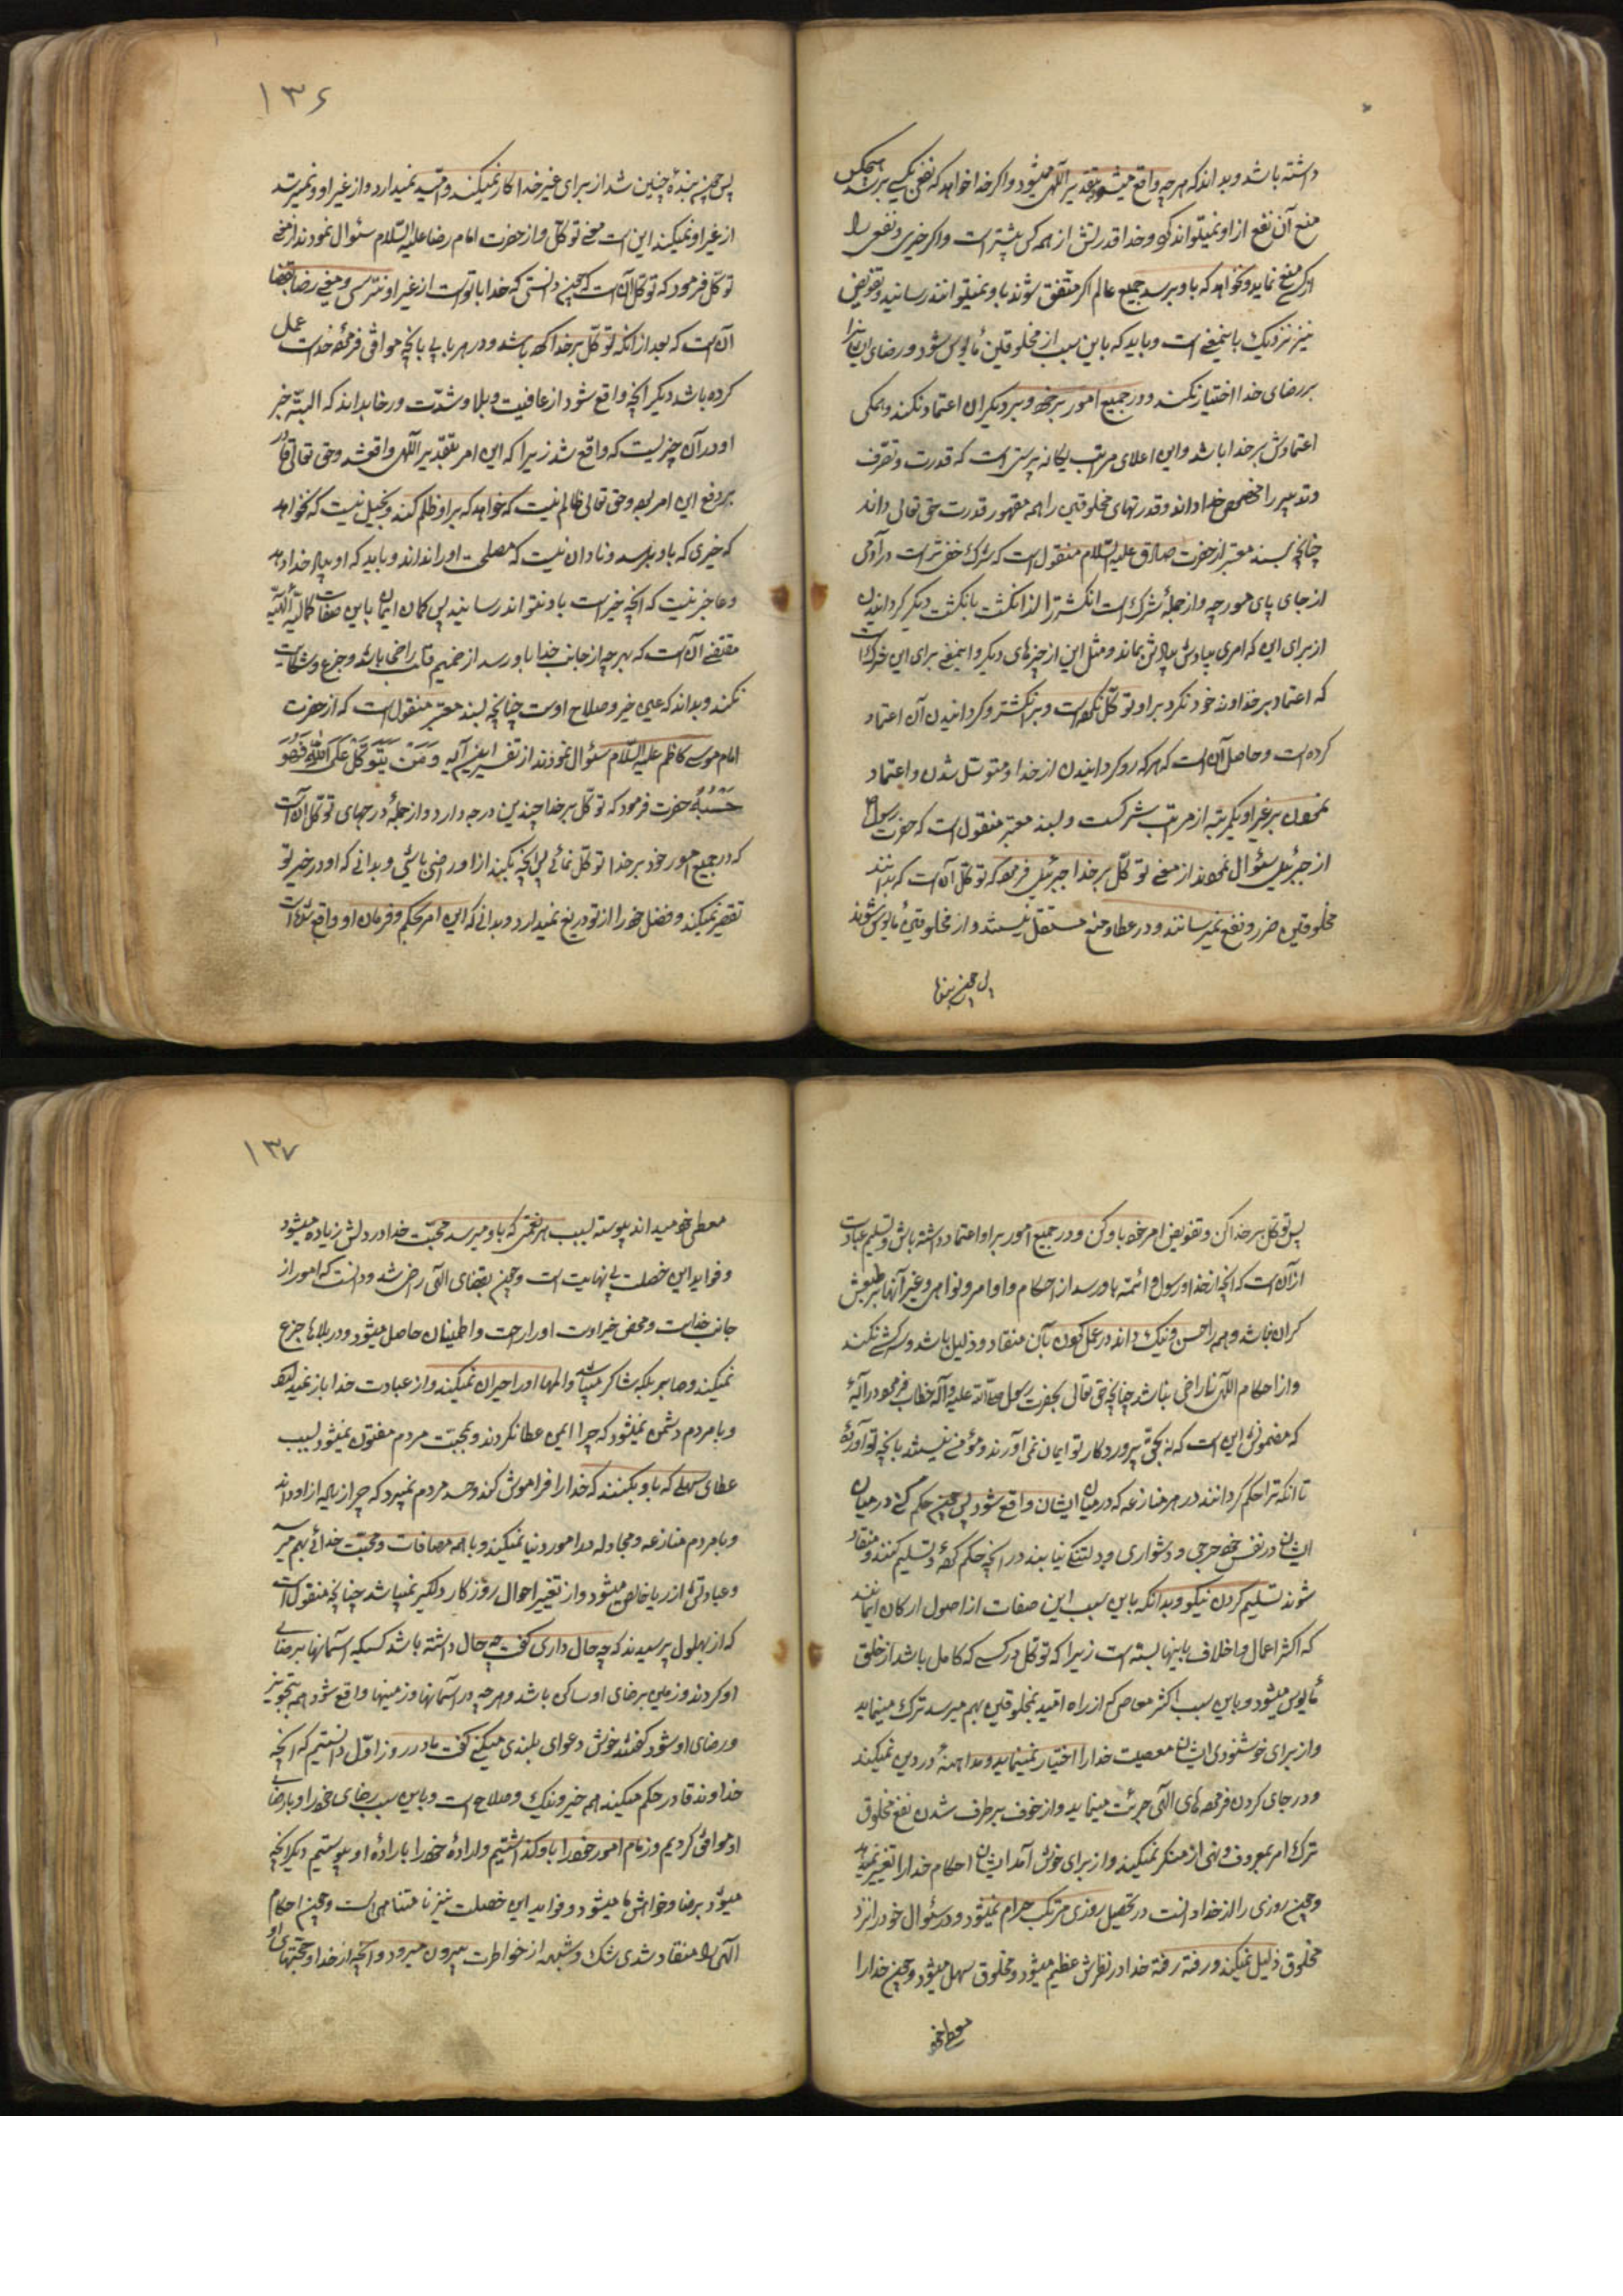 داشته باشد و بداند که هر چه واقع میشود بتقدیر آلهی میشود و اکر خدا خواهد که نفعی بکسی برسد هیچکس
منع آن نفع از او نمیتواند کرد و خدا قدرتش از همه کس بیشتر است و اکر خیری و نفعی را
از کسی منع نماید و نخواهد که باو برسد جمیع عالم اکر متفق شوند باو نمیتوانند رسانید و تفویض
نیز نزدیک باینمعنی است و باید که باین سبب از مخلوقین مأیوس شود و رضای ایشانرا
بر رضای خدا اختیار نکند و در جمیع امور بر خود و بر دیکران اعتماد نکند و همکی
اعتمادش بر خدا باشد و این اعلای مراتب یکانه پرستی است که قدرت و تصرف
و تدبیر را مخصوص خدا داند و قدرتهای مخلوقین را همه مقهور قدرت حق تعالی داند
چنانچه بسند معتبر از حضرت صادق علیه السلام منقول است که شرک خفی‌تر است در آدمی
از جای پای مورچه و از جملهٔ شرک است انکشتر را از انکشت بانکشت دیکر کردانیدن
از برای این که امری بیادش بماند و مثل این از چیزهای دیکر و اینمعنی برای این شرک است
که اعتماد بر خداوند خود نکرد و بر او توکل نکرده است و بر انکشتر و کردانیدن آن اعتماد
کرده است و حاصل آن است که هر که رو کردانیدن از خدا و متوسل شدن و اعتماد
نمودن بر غیر او یکمرتبه از مراتب شرکست و بسند معتبر منقول است که حضرت رسول ص
از جبرئیل سئوال نمودند از معنی توکل بر خدا جبرئیل فرمود که توکل آن است که بدانند
مخلوقین ضرر و نفع نمیرسانند و در عطا و منع مستقل نیستند و از مخلوقین مأیوس شوند
پس چون بنده
۱۳۶
پس چون بندهٔ چنین شد از برای غیر خدا کار نمیکند و امید نمیدارد و از غیر او و نمیترسد
از غیر او نمیکند این است معنی توکل و از حضرت امام رضا علیه السلام سئوال نمودند از معنی
توکل فرمود که توکل آن است که چون دانستی که خدا با توست از غیر او نترسی و معنی رضا بقضا
آن است که بعد از آنکه توکل بر خدا کرده باشد و در هر بابی بآنچه موافق فرمودهٔ خداست عمل
کرده باشد دیکر آنچه واقع شود از عافیت و بلا و شدت و رخا بداند که البته خیر
او در آن چیزیست که واقع شد زیرا که این امر بتقدیر آلهی واقع شد و حق تعالی قادر
بر دفع این امر بود و حق تعالی ظالم نیست که خواهد که بر او ظلم کند و بخیل نیست که نخواهد
که خیری که باو برسد و نادان نیست که مصلحت او را نداند و باید که او را خدا داند
و عاجز نیست که آنچه خیر است باو نتواند رسانید پس کمان ایمان باین صفات کمالیهٔ آلهیه
مقتضی آن است که بهر چه از جانب خدا باو رسد از صمیم قلب راضی باشد و جزع و شکایت
نکند و بداند که عین خیر و صلاح اوست چنانچه بسند معتبر منقول است که از حضرت
امام موسی کاظم علیه السلام سئوال نمودند از تفسیر این آیه وَمَنْ یَتَوَکَّلْ عَلَی اللّٰهِ فَهُوَ
حَسْبُهُ حضرت فرمود که توکل بر خدا چندین درجه دارد و از جملهٔ درجهای توکل آن است
که در جمیع امور خود بر خدا توکل نمائی پس آنچه بکند از او راضی باشی و بدانی که او در خیر تو
تقصیر نمیکند و فضل خود را از تو دریغ نمیدارد و بدانی که این امر بحکم و فرمان او واقع شده است
پس توکل بر خدا کن و تفویض امر خود باو کن و در جمیع امور بر او اعتماد داشته باش و تسلیم عبارت
از آن است که آنچه از خدا و رسول و ائمه باو رسد از احکام و اوامر و نواهی و غیر آنها بر طبعش
کران نباشد و همه را حسن و نیک داند در عمل کردن بآن منقاد و ذلیل باشد و سرکشی نکند
و از احکام آلهی ناراضی نباشد چنانچه حق تعالی بحضرت رسول صلی الله علیه و آله خطاب فرمود در آیهٔ
که مضمونش این است که نه بحق پروردکار تو ایمان نمی آورند و مؤمن نیستند بآنچه تو آوردهٔ
تا آنکه ترا حکم کردانند در هر منازعه که در میان ایشان واقع شود پس چون حکم کنی در میان
ایشان در نفس خود حرجی و دشواری و دلتنکی نیابند در آنچه حکم کردهٔ و تسلیم کنند و منقاد
شوند تسلیم کردن نیکو و بدانکه باین سبب این صفات از اصول ارکان ایمانند
که اکثر اعمال و اخلاف باینها بسته است زیرا که توکل در کسی که کامل باشد از خلق
مأیوس میشود و باین سبب اکثر معاصی که از راه امید بمخلوقین بهم میرسد ترک مینماید
و از برای خوشنودی ایشان معصیت خدا را اختیار نمینماید و مداهنه در دین نمیکند
و در جای کردن فرموده‌های آلهی جرئت مینماید و از خوف بر طرف شدن نفع مخلوق
ترک امر بمعروف و نهی از منکر نمیکند و از برای خوش آمد ایشان احکام خدا را تغییر نمیدهد
و چون روزی را از خدا دانست در تحصیل روزی مرتکب حرام نمیشود و در سئوال خود را نزد
مخلوق ذلیل نمیکند و رفته رفته خدا در نظرش عظیم میشود و مخلوق سهل میشود و چون خدا را
معطی خود
۱۳۷
معطی خود میداند پیوسته بسبب هر نعمتی که باو میرسد محبت خدا در دلش زیاده میشود
و فواید این خصلت بی نهایت است و چون بقضای آلهی راضی شد و دانست که امور از
جانب خداست و محض خیر اوست او را راحت و اطمینان حاصل میشود و در بلاها جزع
نمیکند و صابر بلکه شاکر میباشد و المها او را حیران نمیکند و از عبادت خدا باز نمیدارد
و با مردم دشمن نمیشود که چرا این عطا نکردند و بمحبت مردم مفتون نمیشود بسبب
عطای سهلی که باو بکنند که خدا را فراموش کند و حسد مردم نمیبرد که چرا زیاده از او دارند
و با مردم منازعه و مجادله در امور دنیا نمیکند و با همه مصافات و محبت خدائی بهم میرساند
و عباداتش از ریا خالص میشود و از تغییر احوال روزکار دلکیر نمیباشد چنانچه منقول است
که از بهلول پرسیدند که چه حال داری کفت چه حال داشته باشد کسیکه آسمانها برضای
او کردند و زمین برضای او ساکن باشد و هر چه در آسمانها و زمینها واقع شود همه بتجویز
و رضای او شود کفتند خوش دعوای بلندی میکنی کفت ما در روز اول دانستیم که آنچه
خداوند قادر حکم میکند همه خیر و نیک و صلاح است و باین سبب رضای خود را و با رضای
او موافق کردیم و زمام امور خود را باو کذاشتیم و ارادهٔ خود را بارادهٔ او پیوستیم دیکر آنچه
میشود برضا و خواهش ما میشود و فواید این خصلت نیز نا متناهی است و چون احکام
آلهی را منقاد شدی شک و شبهه از خواطرت بیرون میرود و آنچه از خدا و حجتهای او